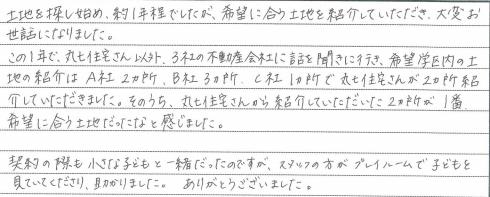 土地を探し始め、約1年程でしたが、希望に合う土地を紹介していただき、大変お
世話になりました。
この1年で、丸七住宅さん以外、3社の不動産会社に話を聞きに行き、希望学区内の土
地の紹介は A社 2ヵ所、B社 3ヵ所、C社 1ヵ所で 丸七住宅さんが2ヵ所 紹
介していただきました。そのうち、丸七住宅さんから紹介していただいた2ヵ所が 1番、
希望に合う土地だったなと感じました。
契約の際も小さな子どもと一緒だったのですが、スタッフの方がプレイルームで子どもを
見ていてくださり、助かりました。 ありがとうございました。